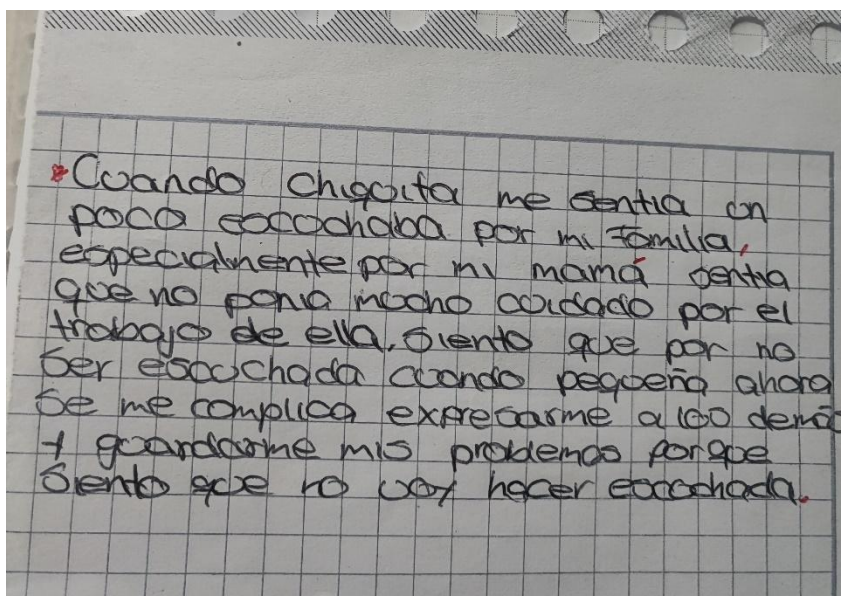 Cuando chiquita me sentia un
poco escuchaba por mi familia,
especialmente por mi mamá sentia
que no ponia mucho cuidado por el
trabajo de ella. Siento que por no
Ser escuchada cuando pequeña ahora
Se me complica expresarme a los demá
y guardarme mis problemas porque
Siento que no voy hacer escuchada.